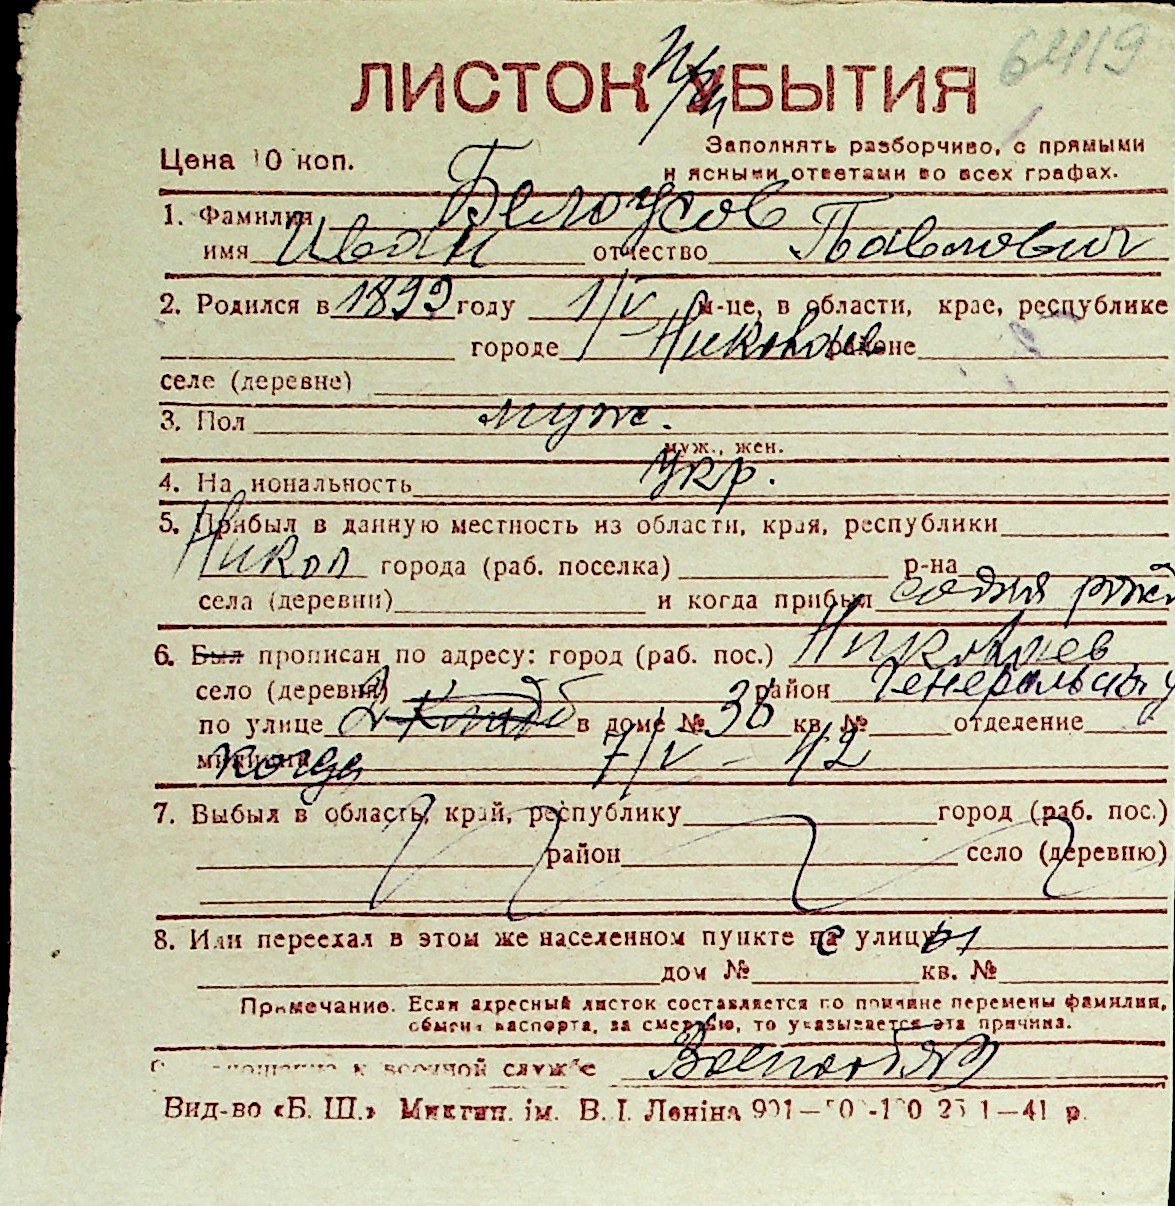 6419
ЛИСТОК УБЫТИЯ
Цена 10 коп.
Заполнять разборчиво, с прямыми
и ясными ответами во всех графах.
1. Фамилия Белоусов
имя Иван отчество Павлович
2. Родился в 1899 году 1/V м-це, в области, крае, республике
городе Николаев районе
селе (деревне)
3. Пол муж.
муж., жен.
4. На иональность укр.
5. Прибыл в данную местность из области, края, республики
Никол города (раб. поселка) р-на
села (деревни) и когда прибыл с дня рожд
6. Был прописан по адресу: город (раб. пос.) Николаев
село (деревня) район Генеральный
по улице в доме № 36 кв. № отделение
милиции когда 7/V - 42
7. Выбыл в область, край, республику город (раб. пос.)
район село (деревню)
8. Или переехал в этом же населенном пункте с улицы
дом № кв. №
Примечание. Если адресный листок составляется по причине перемены фамилии,
обмена паспорта, за смертью, то указывается эта причина.
к военной службе Военнообяз
Вид-во «Б. Ш.» Микгип. ім. В. І. Леніна 1—41 р.